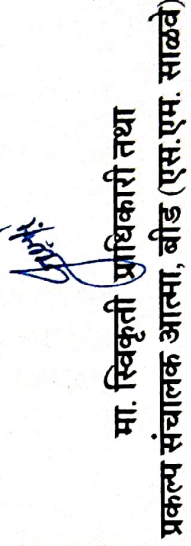 मा. स्विकृती प्राधिकारी तथा
प्रकल्प संचालक आत्मा, बीड (एस.एम. साळवे)